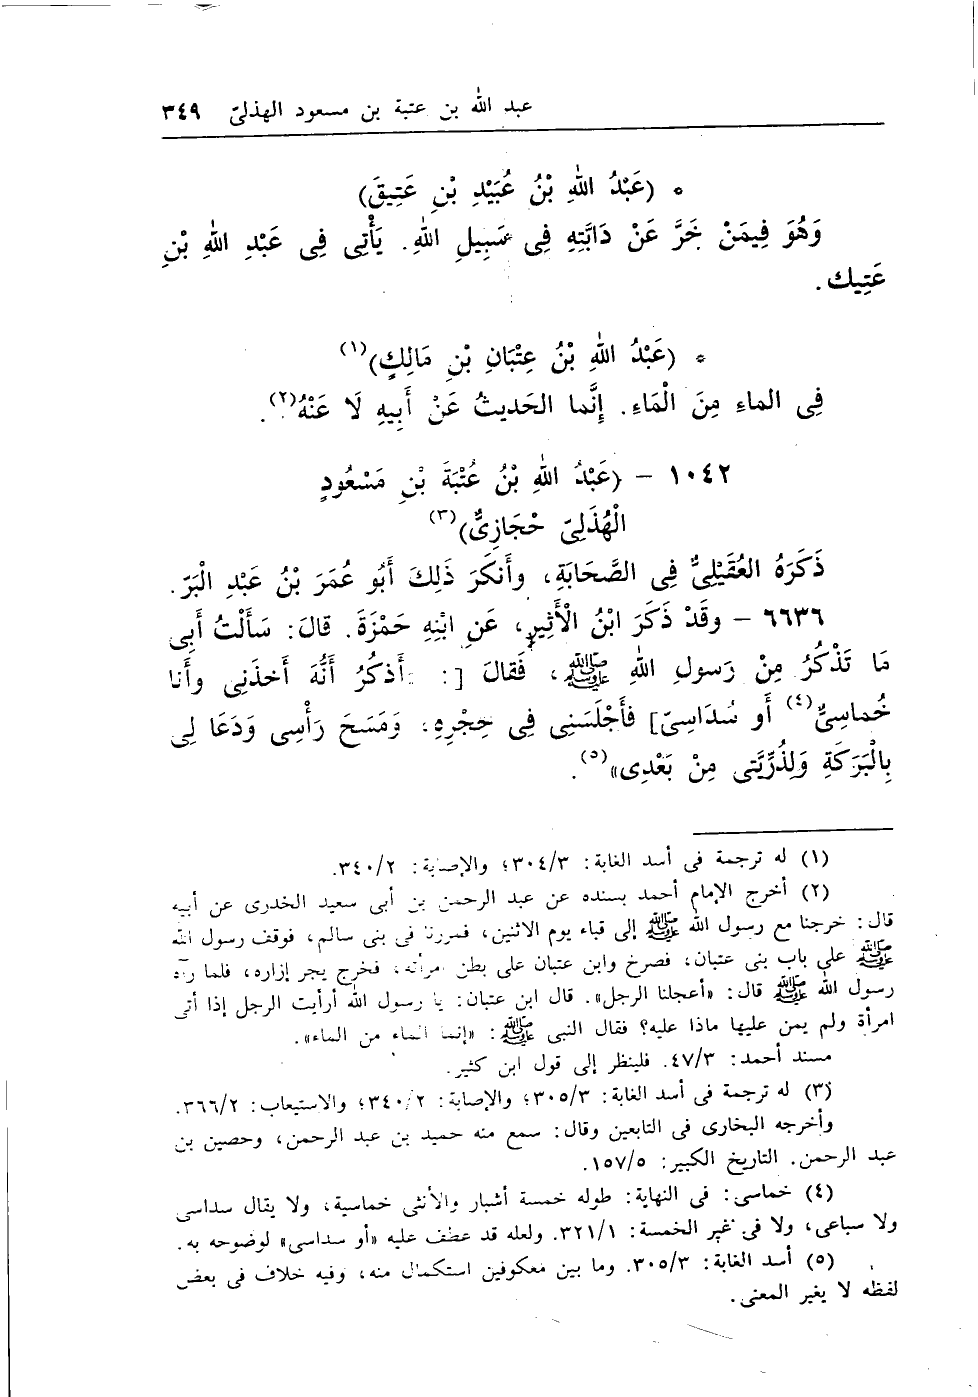 عبد الله بن عتبة بن مسعود الهذلىّ ٣٤٩
* (عَبْدُ اللهِ بْنُ عُبَيْدِ بْنِ عَتِيقَ)
وَهُوَ فِيمَنْ خَرَّ عَنْ دَابَّتِهِ فِى سَبِيلِ اللهِ. يَأْتِى فِى عَبْدِ اللهِ بْنِ
عَتِيك.
* (عَبْدُ اللهِ بْنُ عِتْبَانِ بْنِ مَالِكٍ)(١)
فِى الماءِ مِنَ الْمَاءِ. إِنَّما الحَديثُ عَنْ أَبيهِ لَا عَنْهُ(٢).
١٠٤٢ - (عَبْدُ اللهِ بْنُ عُتْبَةَ بْنِ مَسْعُودٍ
الْهُذَلِىّ حْجَازِىٌّ)(٣)
ذَكَرَهُ العُقَيْلِىُّ فِى الصَّحَابَةِ، وأَنكَرَ ذَلِكَ أَبُو عُمَرَ بْنُ عَبْدِ الْبَرّ.
٦٦٣٦ - وقَدْ ذَكَرَ ابْنُ الْأَثِيرِ، عَنِ ابْنِهِ حَمْزَةَ. قالَ: سَأَلْتُ أَبِى
مَا تَذْكُرُ مِنْ رَسولِ اللهِ ﷺ، فَقالَ [: أَذكُرُ أَنَّهُ أَخذَنِى وأَنا
خُماسِىٌّ(٤) أَو سُدَاسِىّ] فأَجْلَسَنِى فِى حِجْرِهِ، وَمَسَحَ رَأْسِى وَدَعَا لِى
بِالْبَرَكَةِ وَلِذُرِّيَّتِى مِنْ بَعْدِى»(٥).
(١) له ترجمة فى أسد الغابة: ٣٠٤/٣؛ والإصابة: ٣٤٠/٢.
(٢) أخرج الإمام أحمد بسنده عن عبد الرحمن بن أبى سعيد الخدرى عن أبيه
قال: خرجنا مع رسول الله ﷺ إلى قباء يوم الاثنين، فمررنا فى بنى سالم، فوقف رسول الله
ﷺ على باب بنى عتبان، فصرخ وابن عتبان على بطن امرأته، فخرج يجر إزاره، فلما رآه
رسول الله ﷺ قال: «أعجلنا الرجل». قال ابن عتبان: يا رسول الله أرأيت الرجل إذا أتى
امرأة ولم يمن عليها ماذا عليه؟ فقال النبى ﷺ: «إنما الماء من الماء».
مسند أحمد: ٤٧/٣. فلينظر إلى قول ابن كثير.
(٣) له ترجمة فى أسد الغابة: ٣٠٥/٣؛ والإصابة: ٣٤٠/٢؛ والاستيعاب: ٣٦٦/٢.
وأخرجه البخارى فى التابعين وقال: سمع منه حميد بن عبد الرحمن، وحصين بن
عبد الرحمن. التاريخ الكبير: ١٥٧/٥.
(٤) خماسى: فى النهاية: طوله خمسة أشبار والأنثى خماسية، ولا يقال سداسى
ولا سباعى، ولا فى غير الخمسة: ٣٢١/١. ولعله قد عطف عليه «أو سداسى» لوضوحه به.
(٥) أسد الغابة: ٣٠٥/٣. وما بين معكوفين استكمال منه، وفيه خلاف فى بعض
لفظه لا يغير المعنى.